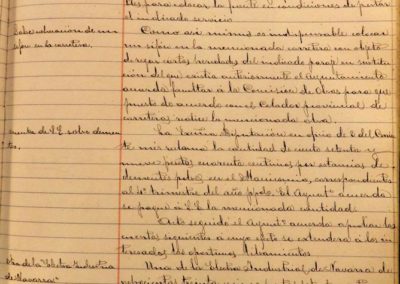 tes para colocar la fuente en condiciones de prestar
el indicado servicio
Sobre colocación de un
sifon en la carretera.
Como así mismo es indispensable colocar
un sifon en la mencionada carretera con objeto
de regar
del indicado
en sustitu
ción del que
anteriormente el Ayuntamiento
acuerda facultar á la Comision de Obras para que
puesto de acuerdo con el Celador provincial de
carreteras realice la mencionada obra.
sobre demen
tes.
La Excma Diputación en oficio de 8 del Corrte
la cantidad de ciento setenta y
nueve pesetas cuarenta centimos por estancias de
dementes
en el Manicomio, correspondientes
al 4º trimestre del año ppdo. El Ayuntº acuerda
se pague á S.E. la mencionada cantidad.
Acto seguido el Ayuntº acuerda aprobar las
cuentas siguientes á cuyo
se extenderá á los in
teresados los oportunos libramientos
de la Electra Industria
de Navarra
Una de la Electra Industrial de Navarra de